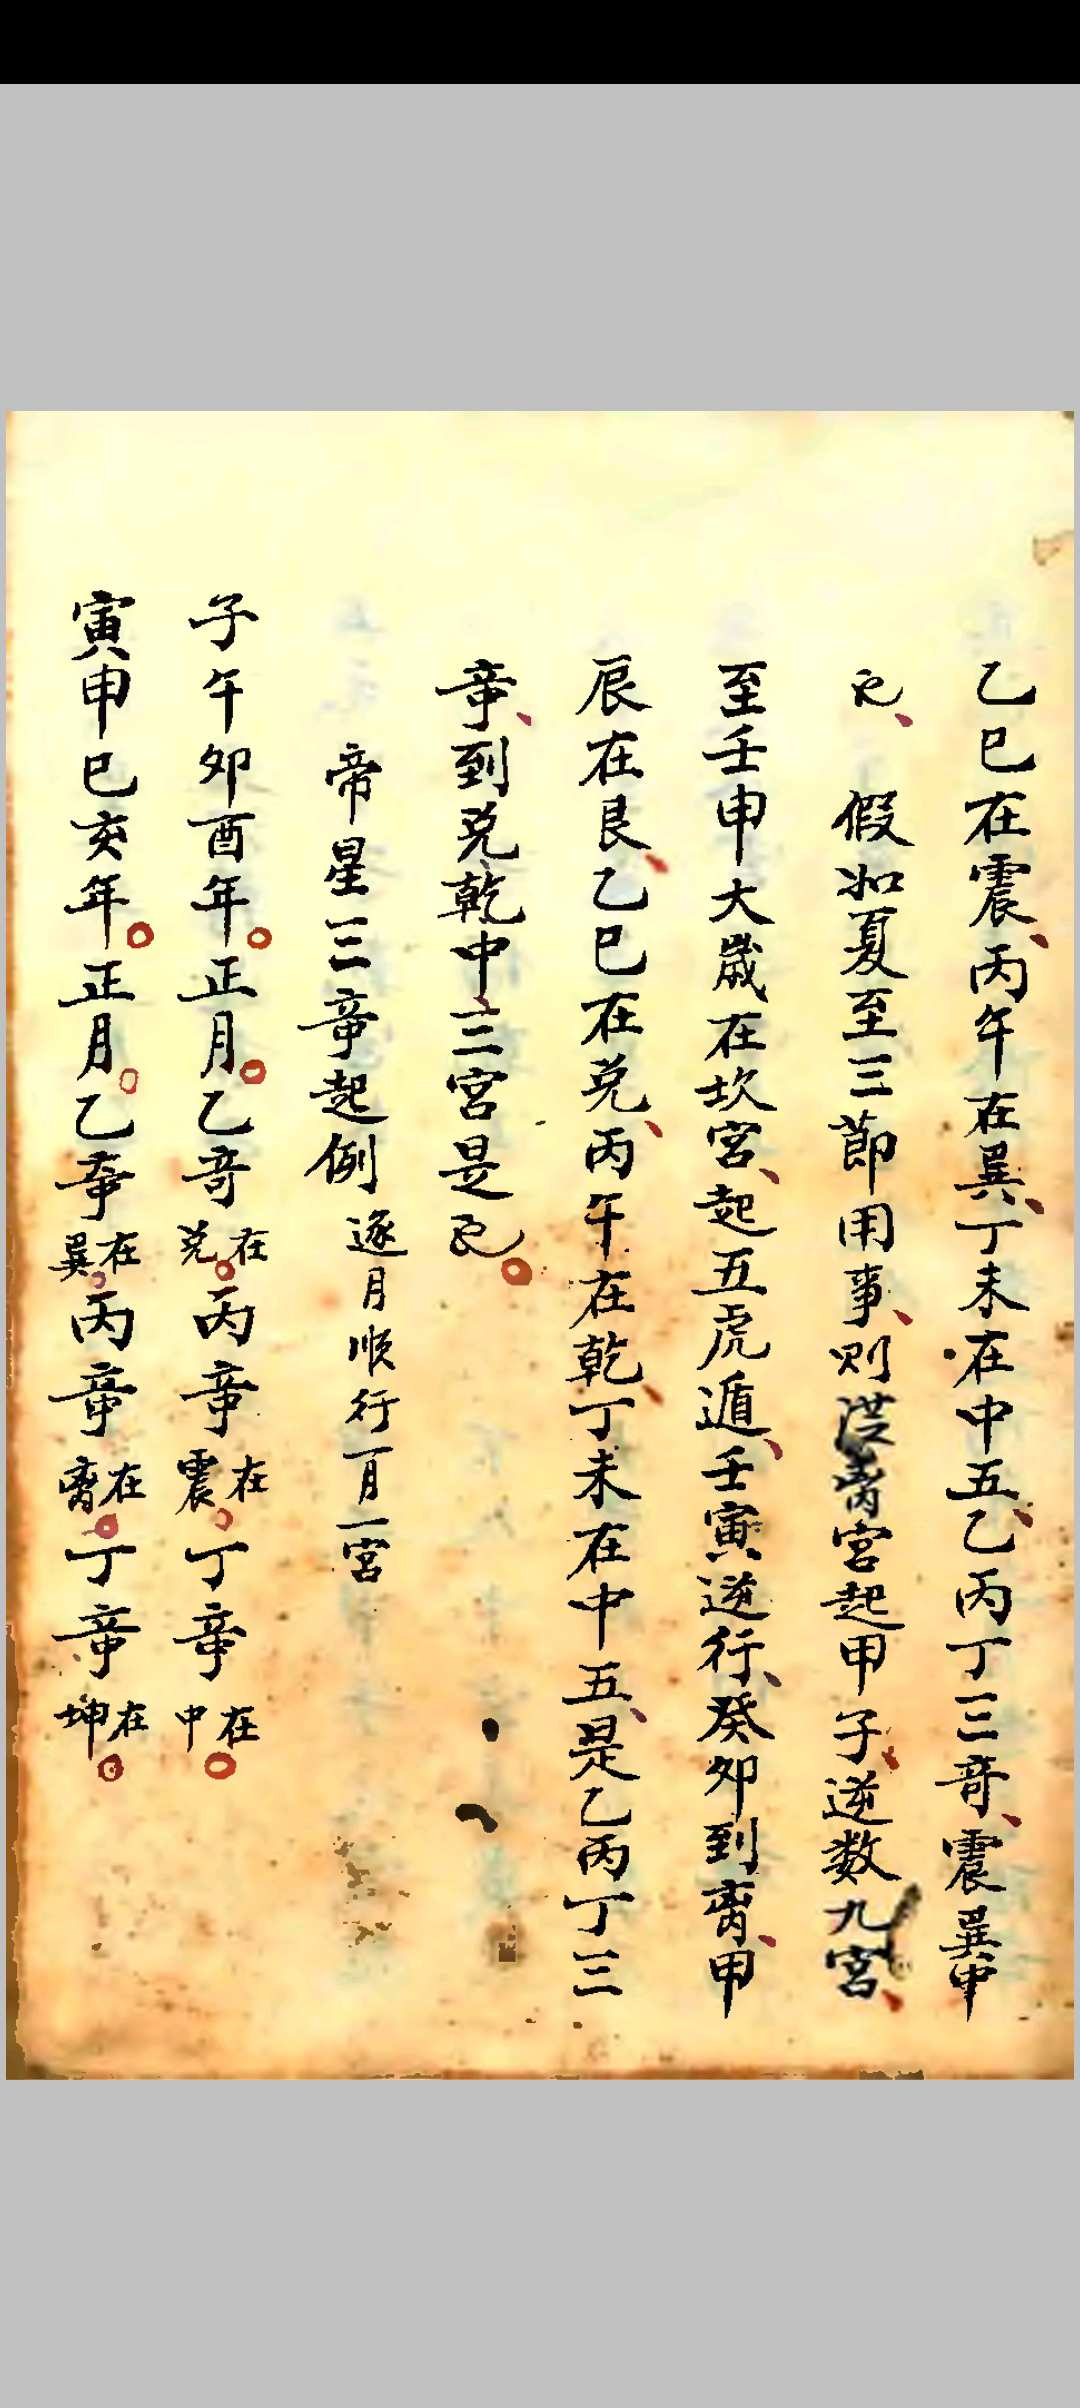 乙巳在震丙午在巽丁未在中五乙丙丁三奇震巽中
已　假如夏至三節用事則從离宮起甲子逆数九宮
至壬申大歲在坎宮起五虎遁壬寅逆行癸卯到离甲
辰在艮乙巳在兌丙午在乾丁未在中五是乙丙丁三
奇到兌乾中三宮是已
帝星三奇起例 逐月順行一月一宮
子午卯酉年正月乙奇在兌丙奇在震丁奇在中
寅申巳亥年正月乙奇在巽丙奇在离丁奇在坤